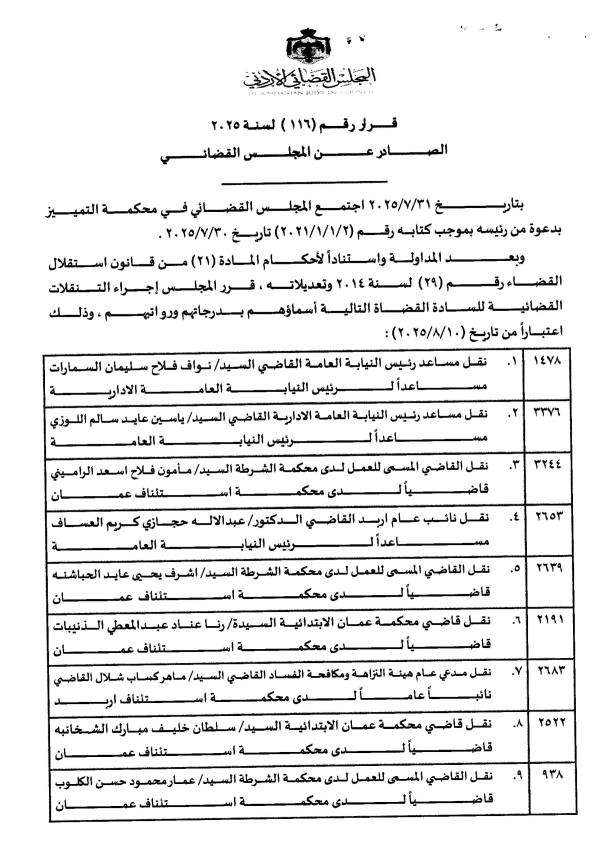 المجلس القضائي الأردني
THE JORDANIAN JUDICIAL COUNCIL
قرار رقم (١١٦) لسنة ٢٠٢٥
الصادر عن المجلس القضائي
بتاريخ ٢٠٢٥/٧/٣١ اجتمع المجلس القضائي في محكمة التمييز
بدعوة من رئيسه بموجب كتابه رقم (٢٠٢١/١/١/٢) تاريخ ٢٠٢٥/٧/٣٠ .
وبعد المداولة واستناداً لأحكام المادة (٢١) من قانون استقلال
القضاء رقم (٢٩) لسنة ٢٠١٤ وتعديلاته ، قرر المجلس إجراء التنقلات
القضائية للسادة القضاة التالية أسماؤهم بدرجاتهم ورواتبهم ، وذلك
اعتباراً من تاريخ (٢٠٢٥/٨/١٠) :
١. نقل مساعد رئيس النيابة العامة القاضي السيد/ نواف فلاح سليمان السمارات ١٤٧٨
مساعداً لرئيس النيابة العامة الادارية
٢. نقل مساعد رئيس النيابة العامة الادارية القاضي السيد/ ياسين عايد سالم اللوزي ٣٣٧٦
مساعداً لرئيس النيابة العامة
٣. نقل القاضي المسمى للعمل لدى محكمة الشرطة السيد/ مأمون فلاح اسعد الراميني ٣٢٤٤
قاضياً لدى محكمة استئناف عمان
٤. نقل نائب عام اربد القاضي الدكتور/ عبدالاله حجازي كريم العساف ٢٦٥٣
مساعداً لرئيس النيابة العامة
٥. نقل القاضي المسمى للعمل لدى محكمة الشرطة السيد/ اشرف يحيى عايد الحباشنه ٢٦٣٩
قاضياً لدى محكمة استئناف عمان
٦. نقل قاضي محكمة عمان الابتدائية السيدة/ رنا عناد عبدالمعطي الذنيبات ٢١٩١
قاضياً لدى محكمة استئناف عمان
٧. نقل مدعي عام هيئة النزاهة ومكافحة الفساد القاضي السيد/ ماهر كساب شلال القاضي ٢٦٨٣
نائباً عاماً لدى محكمة استئناف اربد
٨. نقل قاضي محكمة عمان الابتدائية السيد/ سلطان خليف مبارك الشخانبه ٢٥٢٢
قاضياً لدى محكمة استئناف عمان
٩. نقل القاضي المسمى للعمل لدى محكمة الشرطة السيد/ عمار محمود حسن الكلوب ٩٣٨
قاضياً لدى محكمة استئناف عمان